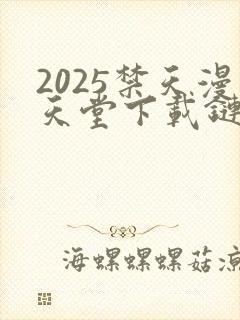 2025禁天漫
天堂下載鏈
海螺螺螺菇涼